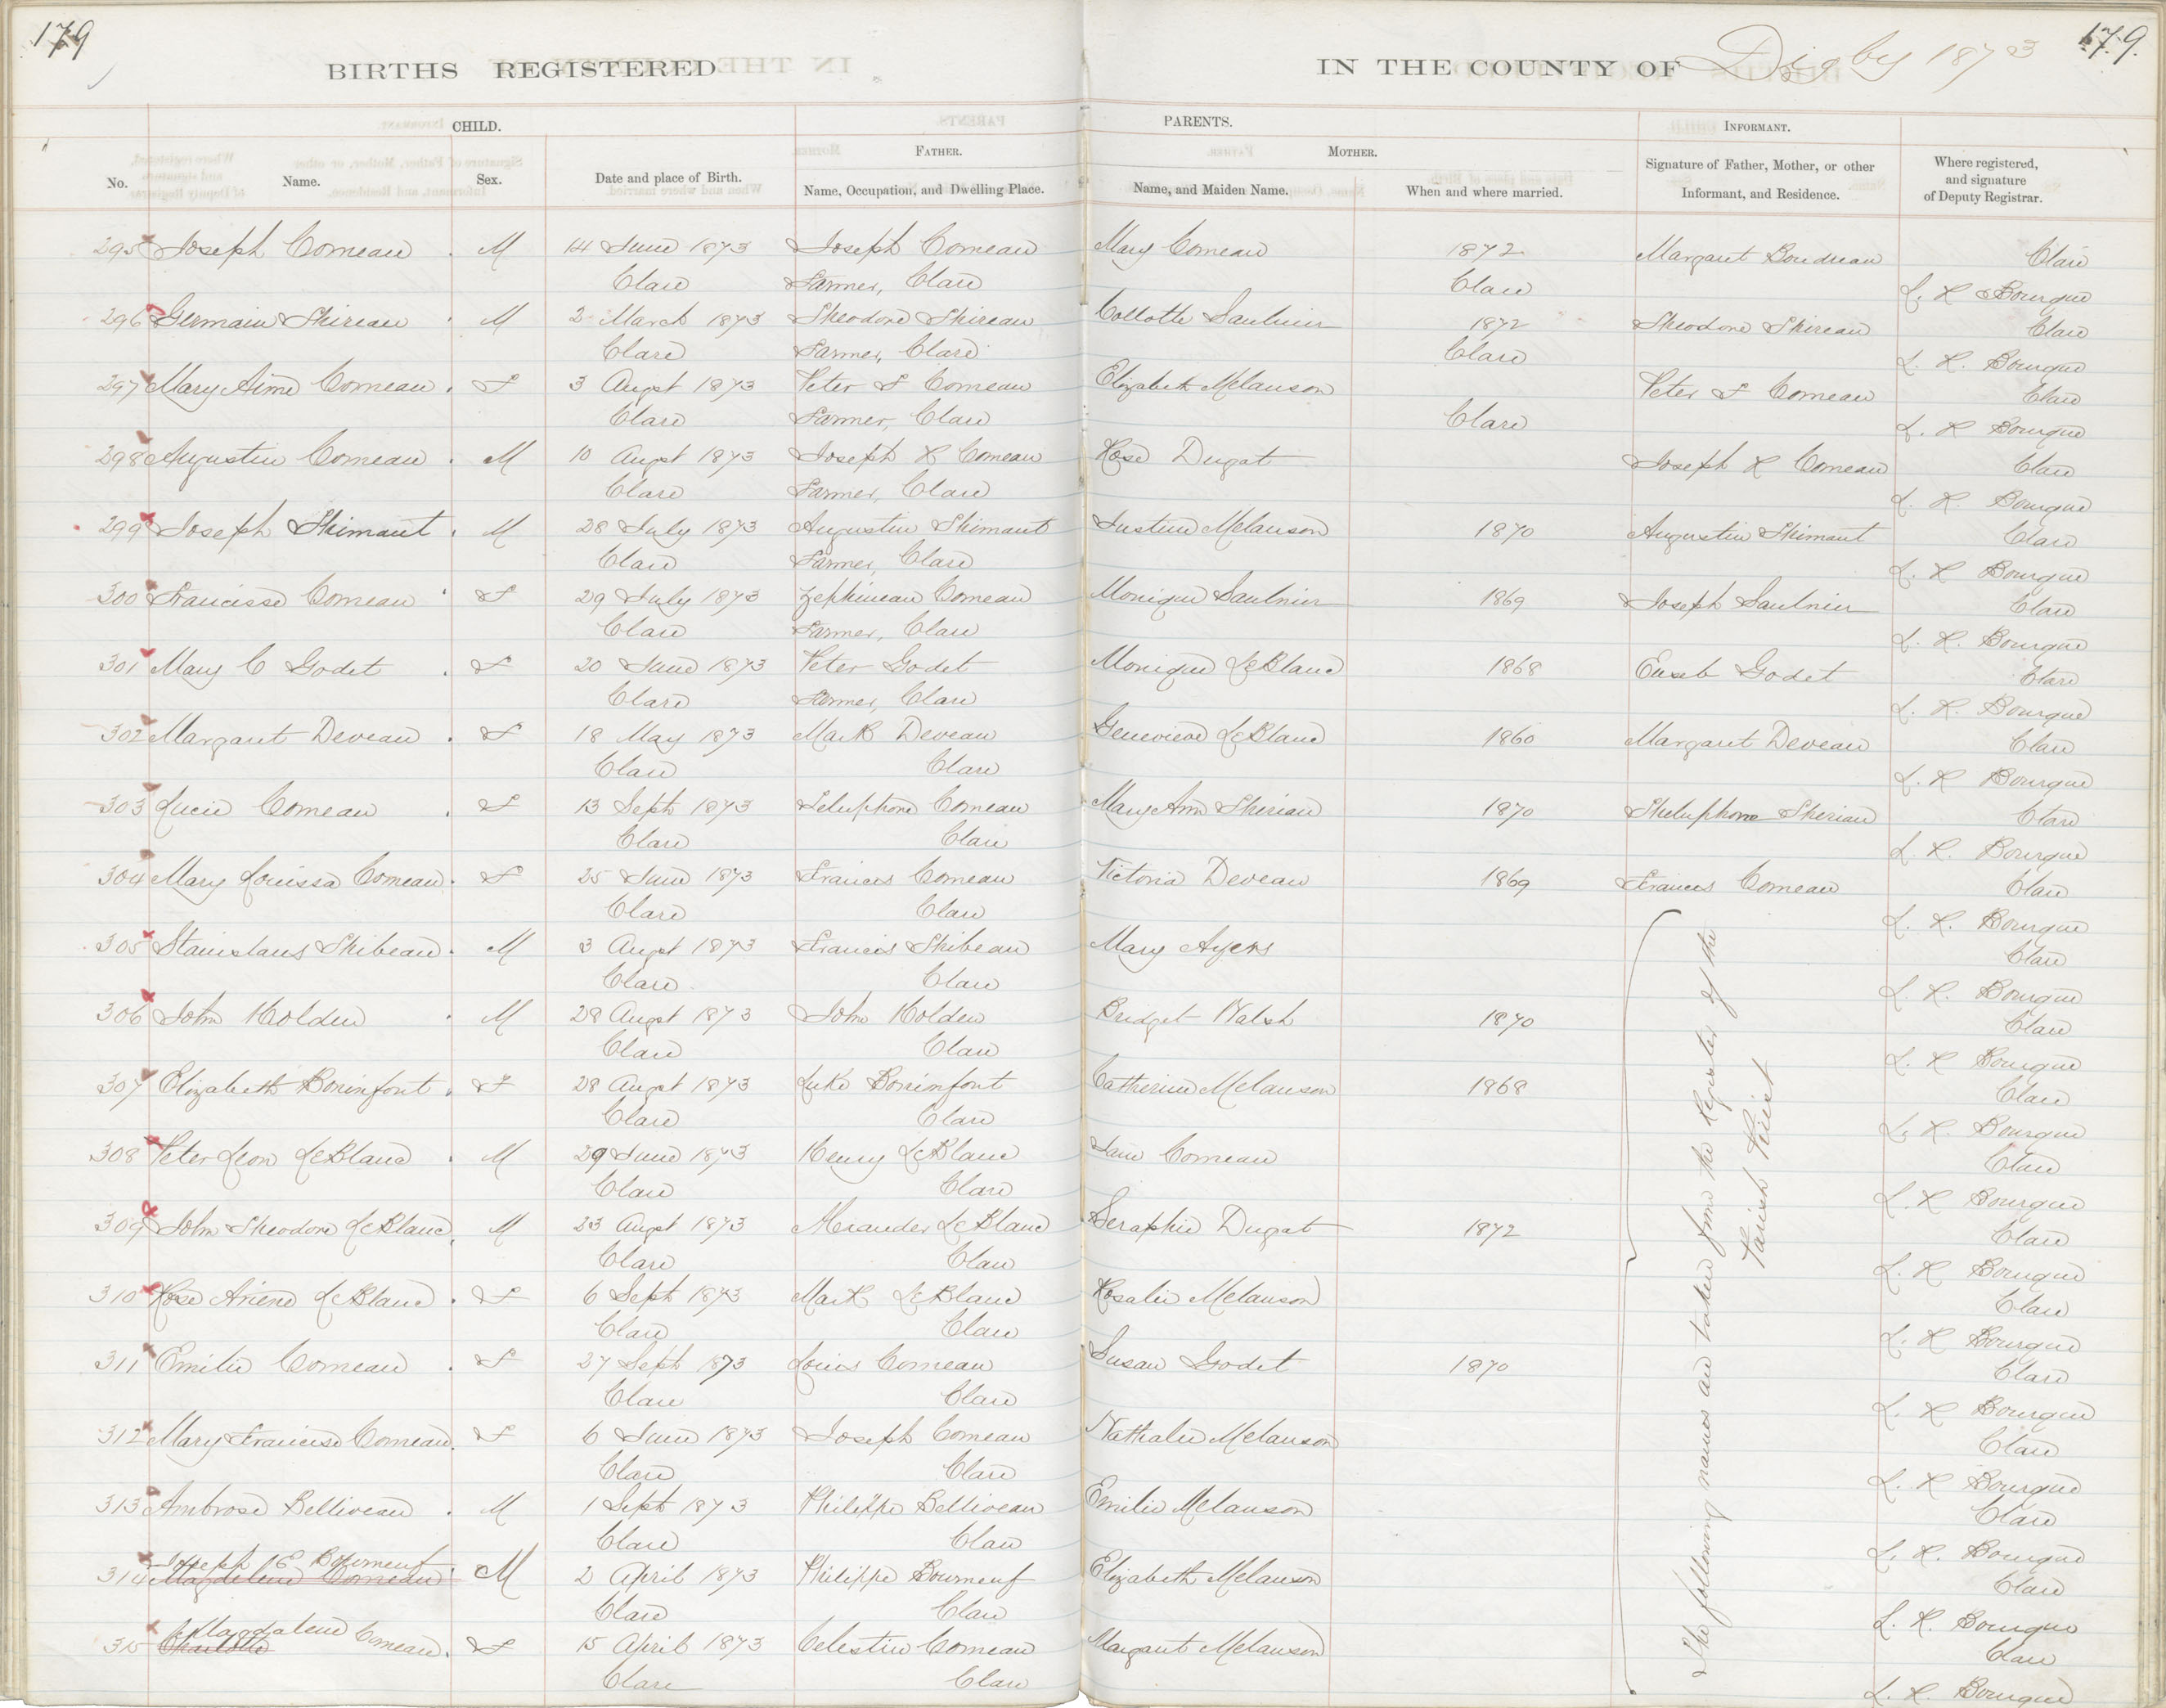 179
179.
BIRTHS REGISTERED
IN THE COUNTY OF Digby 1873
CHILD.
PARENTS.
INFORMANT.
FATHER.
MOTHER.
No.
Name.
Sex.
Date and place of Birth.
Name, Occupation, and Dwelling Place.
Name, and Maiden Name.
When and where married.
Signature of Father, Mother, or other
Informant, and Residence.
Where registered,
and signature
of Deputy Registrar.
295 Joseph Comeau . M 14 June 1873 Joseph Comeau Mary Comeau 1872 Margaret Boudreau Clare
Clare Farmer, Clare Clare L. H Bourque
296 Germain Thireau . M 2 March 1873 Theodore Thireau Collotte Saulnier 1872 Theodore Thireau Clare
Clare Farmer, Clare Clare L. H. Bourque
297 Mary Aime Comeau . F 3 Augst 1873 Peter F Comeau Elizabeth Melanson Peter F Comeau Clare
Clare Farmer, Clare Clare L. H Bourque
298 Augustin Comeau . M 10 Augst 1873 Joseph H Comeau Rose Dugat Joseph H Comeau Clare
Clare Farmer, Clare L. H. Bourque
299 Joseph Thimaut . M 28 July 1873 Augustin Thimaut Justine Melanson 1870 Augustin Thimaut Clare
Clare Farmer, Clare L. H Bourque
300 Francisse Comeau . F 29 July 1873 Zephireau Comeau Monique Saulnier 1869 Joseph Saulnier Clare
Clare Farmer, Clare L. H. Bourque
301 Mary C Godet . F 20 June 1873 Peter Godet Monique LeBlanc 1868 Euseb Godet Clare
Clare Farmer, Clare L. H. Bourque
302 Margaret Deveau . F 18 May 1873 Mark Deveau Genevieve LeBlanc 1860 Margaret Deveau Clare
Clare Clare L. H Bourque
303 Lucie Comeau . F 13 Sept 1873 Teluphone Comeau Mary Ann Theriau 1870 Theluphone Theriau Clare
Clare Clare L. H. Bourque
304 Mary Louissa Comeau . F 25 June 1873 Francis Comeau Victoria Deveau 1869 Frances Comeau Clare
Clare Clare L. H. Bourque
305 Stanislaus Thibeau . M 3 Augst 1873 Francis Thibeau Mary Ayers Clare
Clare Clare L. H. Bourque
306 John Holden . M 28 Augst 1873 John Holden Bridget Walsh 1870 Clare
Clare Clare L. H Bourque
307 Elizabeth Boninfont . F 28 Augst 1873 Luke Boninfont Catherine Melanson 1868 Clare
Clare Clare L. H. Bourque
308 Peter Leon LeBlanc . M 29 June 1873 Henry LeBlanc Jane Comeau Clare
Clare Clare L. H Bourque
309 John Theodore LeBlanc . M 23 Augst 1873 LeBlanc Seraphie Dugat 1872 Clare
Clare Clare L. H Bourque
310 Rose Ariene LeBlanc . F 6 Sept 1873 Mark LeBlanc Rosalie Melanson Clare
Clare Clare L. H Bourque
311 Emilie Comeau . F 27 Sept 1873 Louis Comeau Susan Godet 1870 Clare
Clare Clare L. H Bourque
312 Mary Francise Comeau . F 6 June 1873 Joseph Comeau Nathalie Melanson Clare
Clare Clare L. H. Bourque
313 Ambrose Belliveau . M 1 Sept 1873 Philippe Belliveau Emilie Melanson Clare
Clare Clare L. H. Bourque
Joseph E Bourneuf
314 Magdelene Comeau . M 2 April 1873 Philippe Bourneuf Elizabeth Melanson Clare
Clare Clare L. H. Bourque
Magdalene
315 Charlotte Comeau . F 15 April 1873 Celestin Comeau Margaret Melanson Clare
Clare Clare L. H. Bourque
The following names are taken from the Register of the
Parish Priest